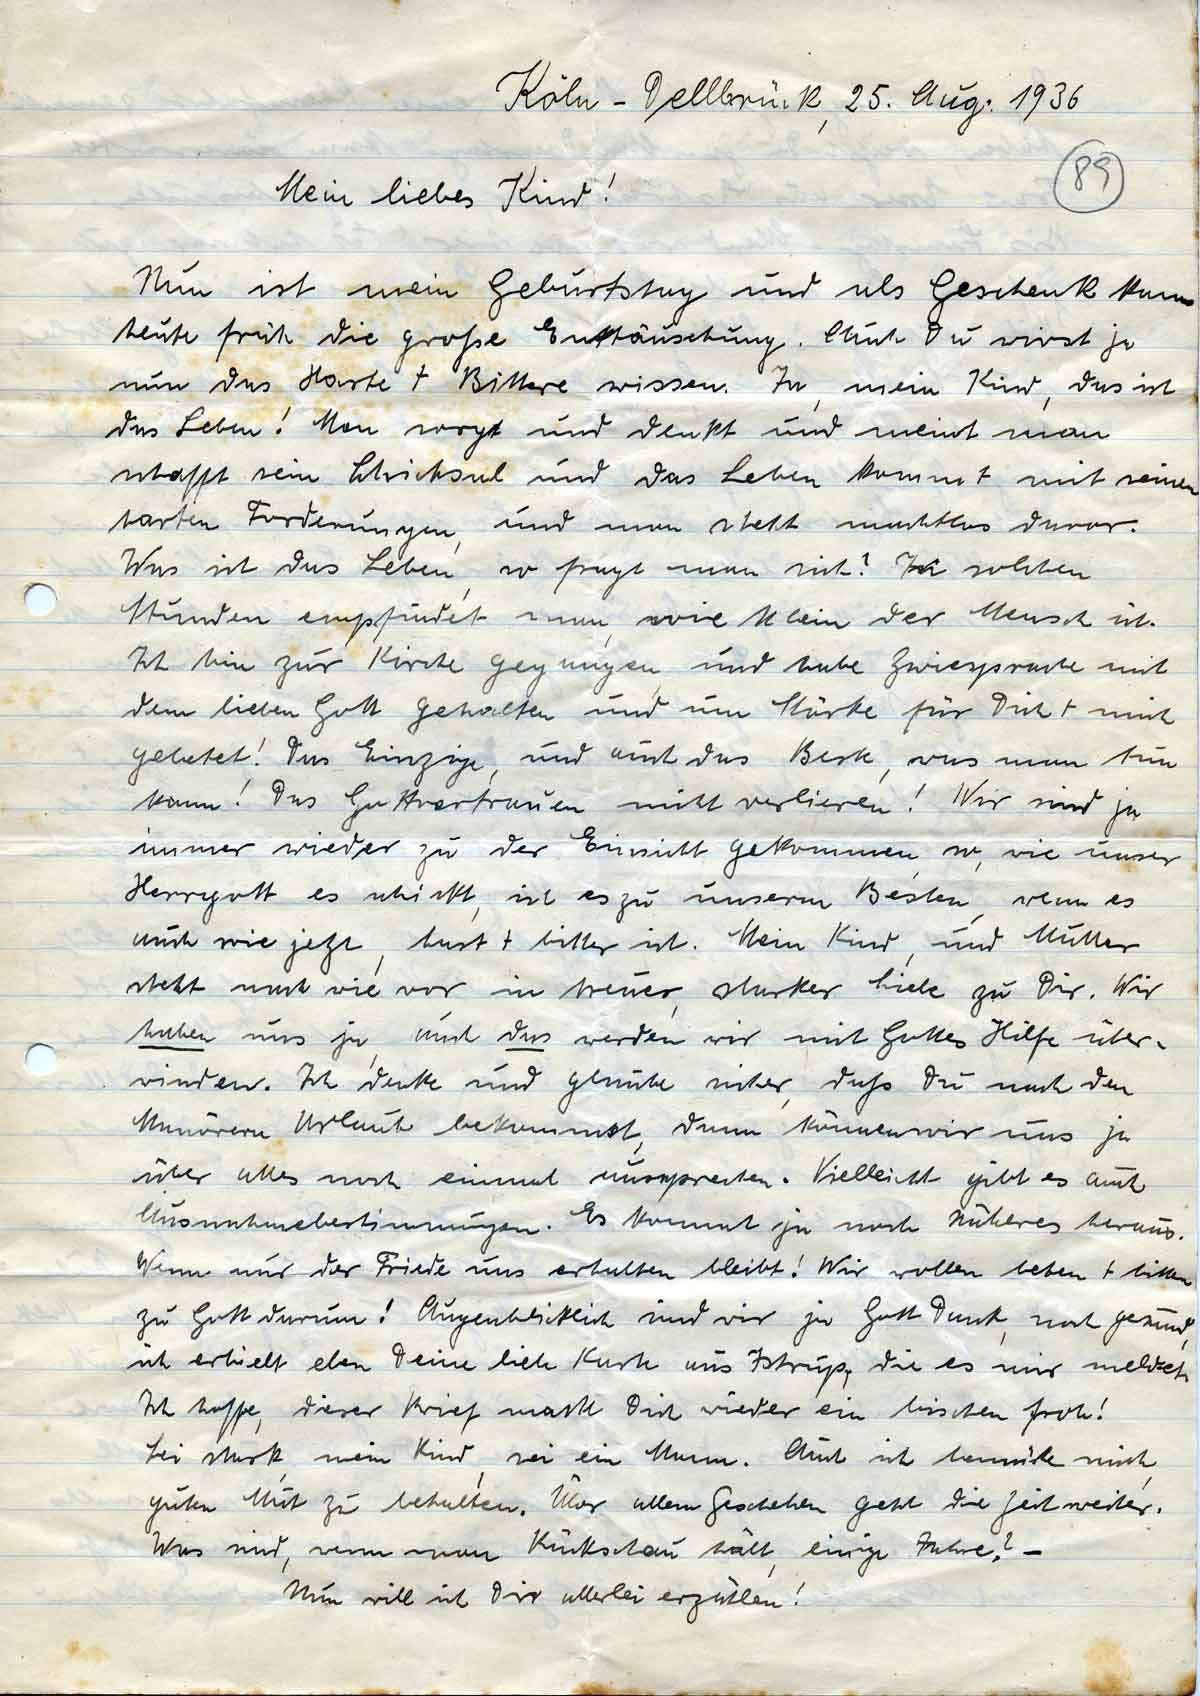 Köln-Dellbrück, 25. Aug. 1936
89
Mein liebes Kind!
Nun ist mein Geburtstag und als Geschenk kam
heute früh die große Enttäuschung. Auch Du wirst ja
nun das Harte + Bittere wissen. Ja, mein Kind, das ist
das Leben! Man sorgt und denkt und meint man
schafft sein Schicksal und das Leben kommt mit seinen
harten Forderungen, und man steht machtlos davor.
Was ist das Leben, so fragt man sich? In solchen
Stunden empfindet man, wie klein der Mensch ist.
Ich bin zur Kirche gegangen, und habe Zwiesprache mit
dem lieben Gott gehalten und um Stärke für Dich + mich
gebetet! Das Einzige, und auch das Beste, was man tun
kann! Das Gottvertrauen nicht verlieren! Wir sind ja
immer wieder zu der Einsicht gekommen, so, wie unser
Herrgott es schickt, ist es zu unserm Besten, wenn es
auch wie jetzt, hart + bitter ist. Mein Kind, und Mutter
steht nach wie vor in treuer, starker Liebe zu Dir. Wir
haben uns ja, und das werden wir mit Gottes Hilfe über-
winden. Ich denke und glaube sicher, daß Du nach den
Manövern Urlaub bekommst, dann können wir uns ja
über alles noch einmal aussprechen. Vielleicht gibt es auch
Ausnahmebestimmungen. Es kommt ja noch Näheres heraus.
Wenn nur der Friede uns erhalten bleibt! Wir wollen beten + bitten
zu Gott darum! Augenblicklich sind wir ja Gott Dank, noch gesund,
ich erhielt eben Deine liebe Karte aus Istrup, die es mir meldet.
Ich hoffe, dieser Brief macht Dich wieder ein bischen froh!
Sei stark, mein Kind, sei ein Mann. Auch ich bemühe mich,
guten Mut zu behalten. Über allem Geschehen geht die Zeit weiter.
Was sind, wenn man Rückschau hält, einige Jahre? –
Nun will ich Dir allerlei erzählen!